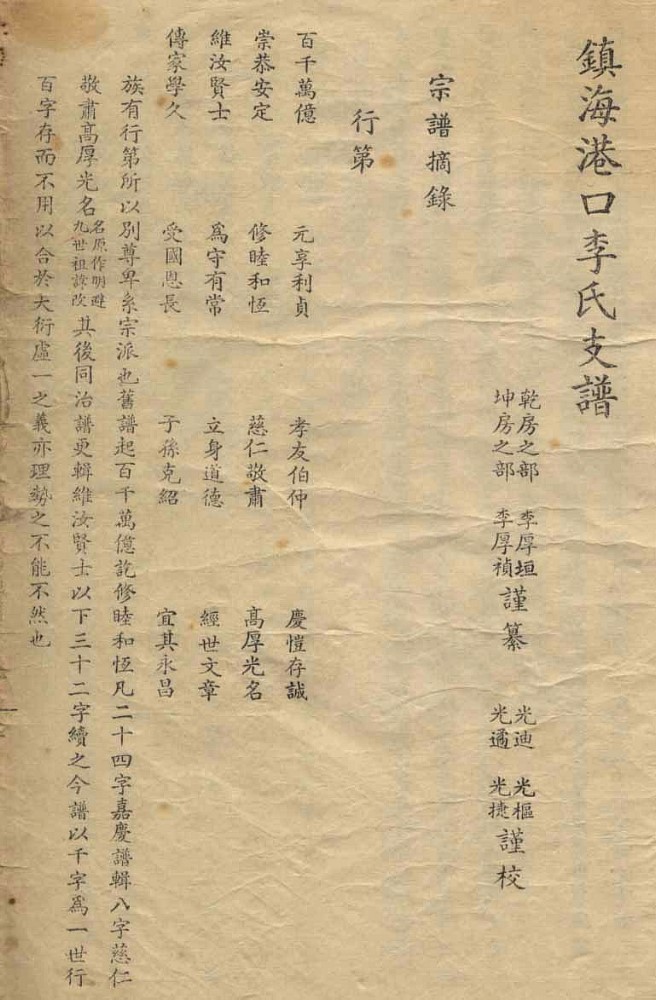 鎮海港口李氏支譜
乾房之部 李厚垣
坤房之部 李厚禎
謹纂
光迪 光樞
光遹 光捷
謹校
宗譜摘錄
行第
百千萬億 元亨利貞 孝友伯仲 慶愷存誠
崇恭安定 修睦和恆 慈仁敬肅 高厚光名
維汝賢士 為守有常 立身道德 經世文章
傳家學久 受國恩長 子孫克紹 宜其永昌
族有行第所以別尊卑系宗派也舊譜起百千萬億訖修睦和恆凡二十四字嘉慶譜輯八字慈仁
敬肅高厚光名名原作明避九世祖諱改其後同治譜更輯維汝賢士以下三十二字續之今譜以千字為一世行
百字存而不用以合於大衍虛一之義亦理勢之不能不然也